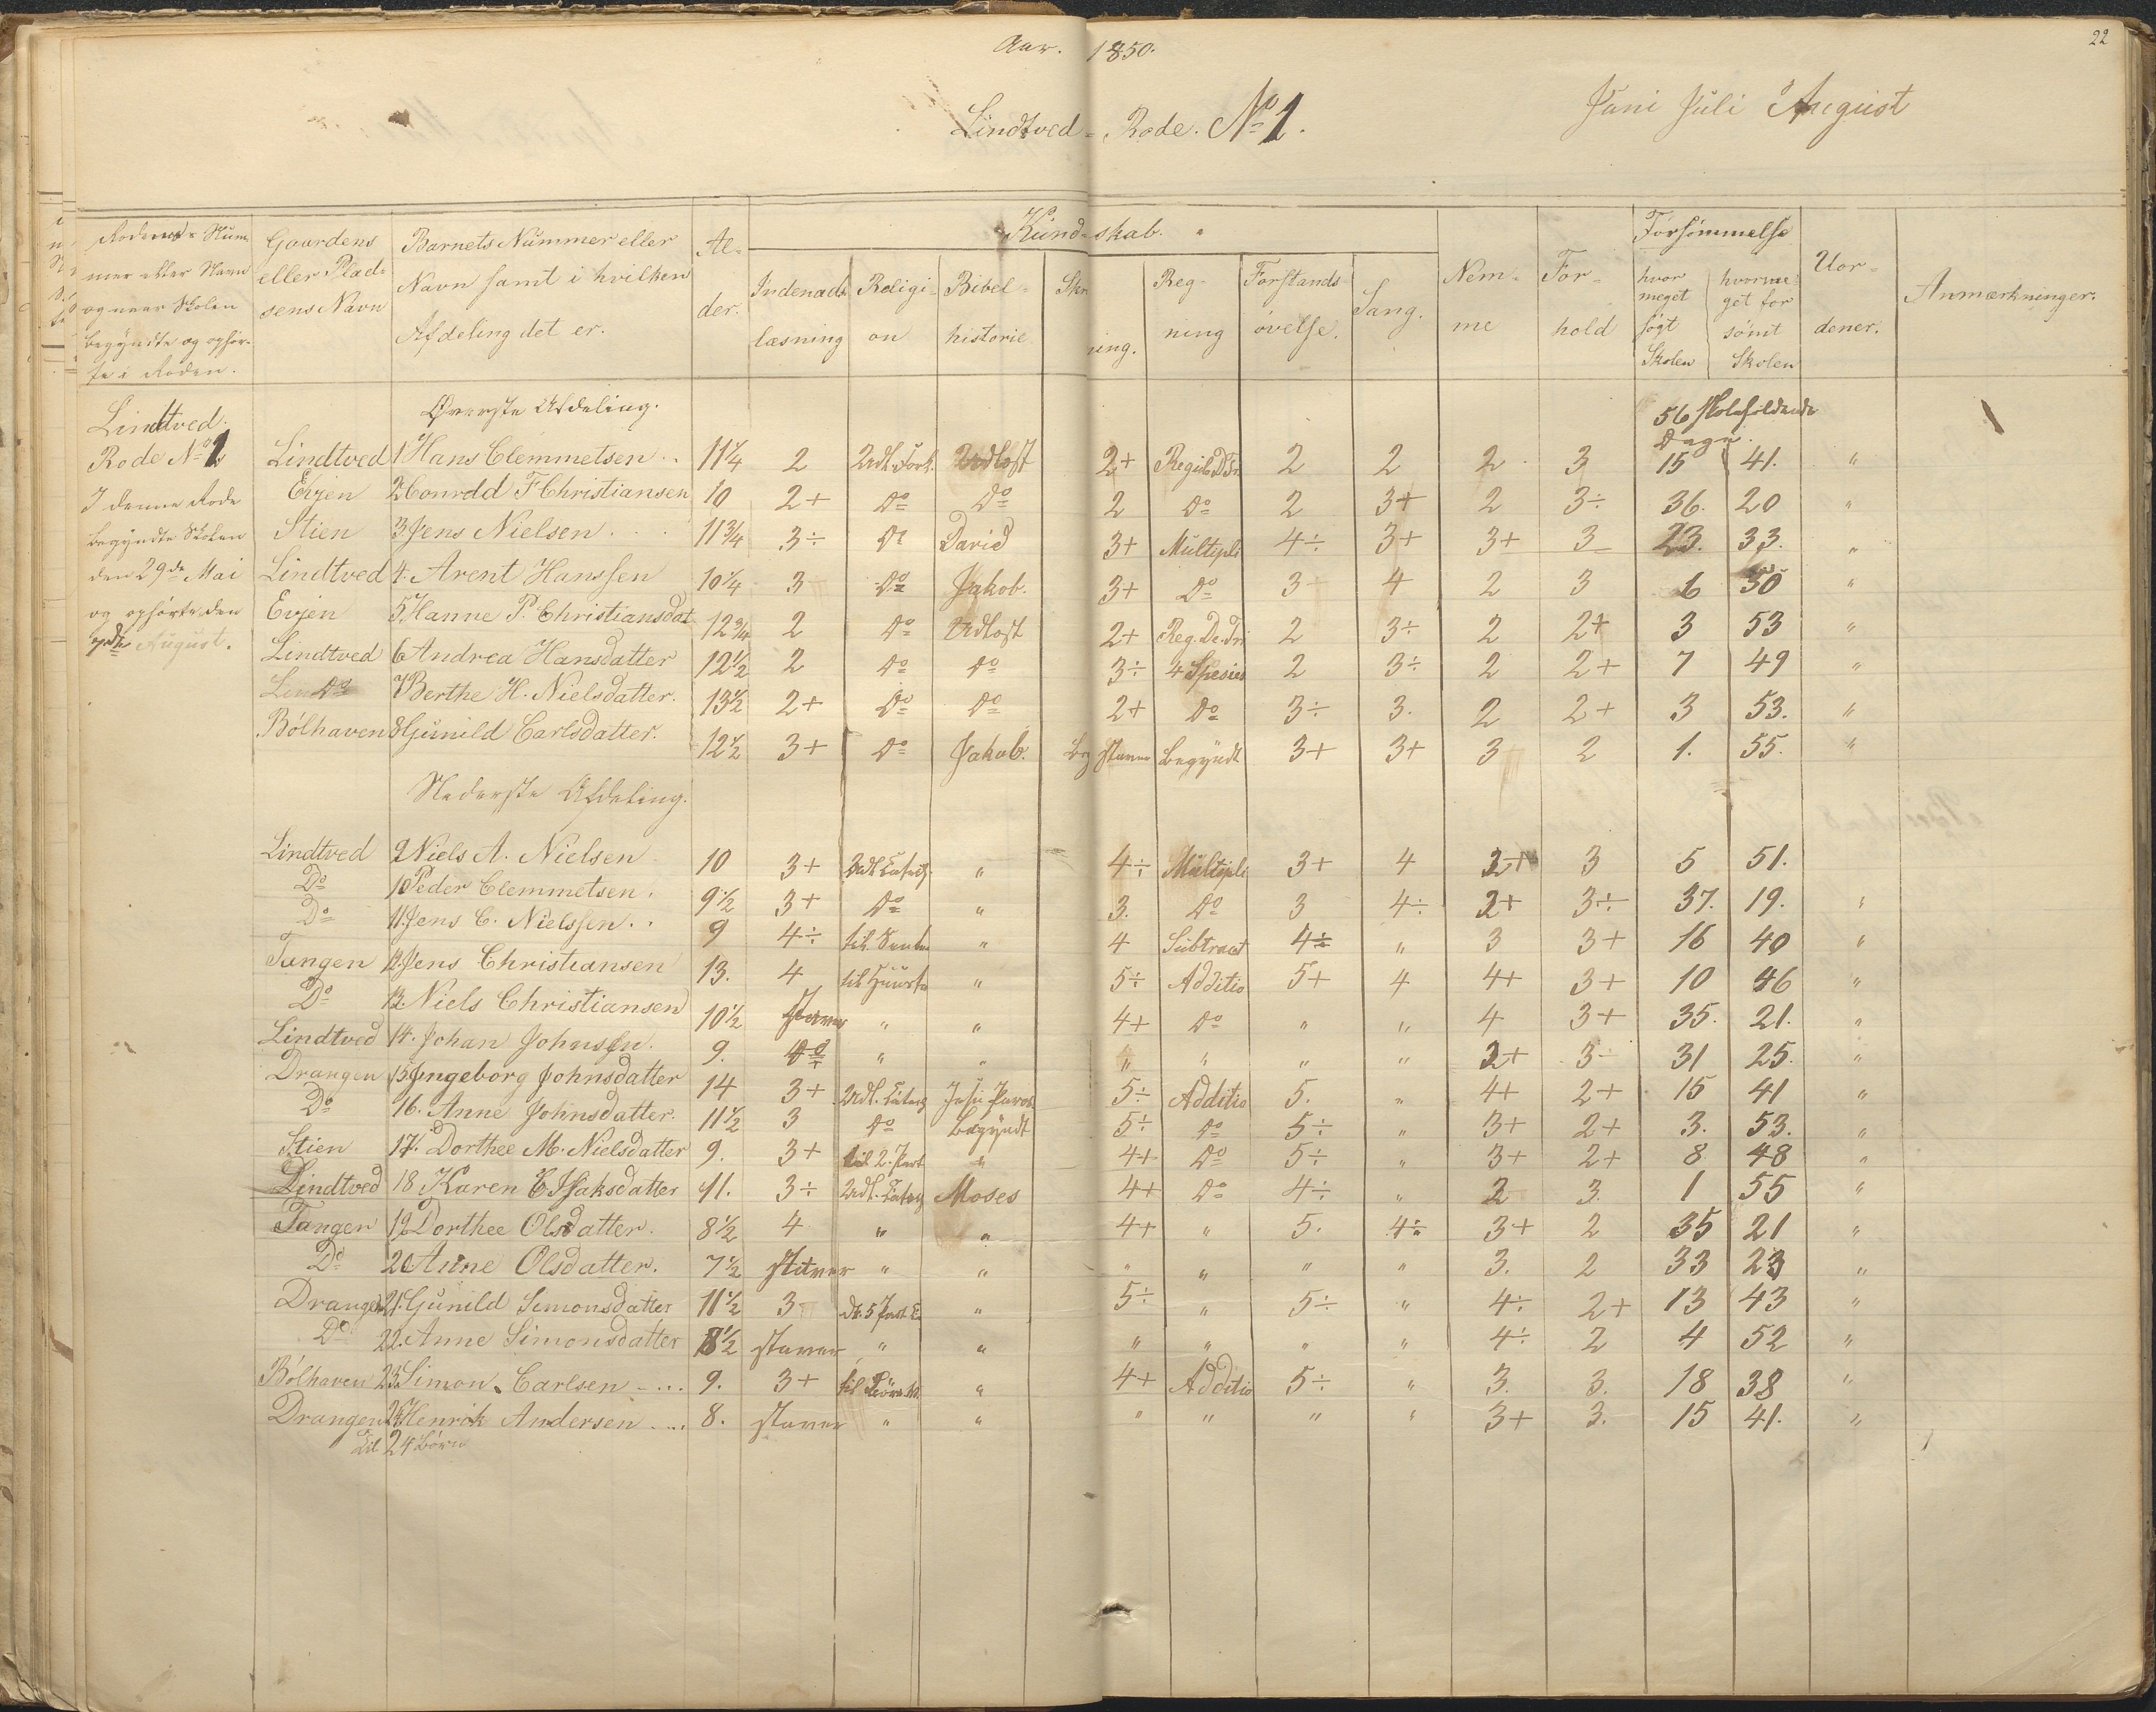 Aar. 1850.
22
Lindtved - Rode. No 1.
Juni Juli August
Rodens Num-
mer eller Navn
og naar Skolen
begyndte og ophør-
te i Roden.
Gaardens
eller Plad-
sens Navn
Barnets Nummer eller
Navn samt i hvilken
Afdeling det er.
Al-
der.
Kund-skab.
Indenads
læsning
Religi-
on
Bibel-
historie
Skri
ning.
Reg-
ning
Forstands
øvelse.
Sang.
Nem-
me
For-
hold
Forsømmelse
hvor
meget
søgt
Skolen
hvorme-
get for
sømt
Skolen
Uor-
dener.
Anmærkninger.
Lindtved.
Rode No 1
I denne Rode
begyndte Skolen
den 29de Mai
og ophørte den
7de August.
Øverste Afdeling.
56 Skoleholdende
Dage.
Lindtved 1 Hans Clemmetsen . . 11 1/4 2 Udl. Fork. Udlæst 2+ Regula D Tri. 2 2 2 3 15 41. "
Evjen 2 Conrdd F Christiansen 10 2+ Do Do 2 Do 2 3+ 2 3÷ 36. 20 "
Stien 3 Jens Nielsen . . . 11 3/4 3÷ Do David 3+ Multipli 4÷ 3+ 3+ 3 23. 33. "
Lindtved 4. Arent Hanssen 10 1/4 3 Do Jakob. 3+ Do 3 4 2 3 6 50 "
Evjen 5 Hanne P. Christiansdat 12 3/4 2 Do Udlæst 2+ Reg. De. Tri 2 3÷ 2 2+ 3 53 "
Lindtved 6 Andrea Hansdatter 12 1/2 2 Do Do 3÷ 4 Spesies 2 3÷ 2 2+ 7 49 "
Do 7 Berthe H. Nielsdatter. 13 1/2 2+ Do Do 2+ Do 3÷ 3. 2 2+ 3 53. "
Bólhaven 8 Gunild Carlsdatter. 12 1/2 3+ Do Jakob. Beg staver Begyndt 3+ 3+ 3 2 1. 55. "
Nederste Afdeling.
Lindtved 9 Niels A. Nielsen 10 3+ Udl. Catech. " 4÷ Multipli 3+ 4 2+ 3 5 51.
Do 10 Peder Clemmetsen. 9 1/2 3+ Do " 3. Do 3 4÷ 2+ 3÷ 37. 19. "
Do 11. Jens C. Nielssen. . 9 4÷ " 4 Subtract 4÷ " 3 3+ 16 40 "
Tangen 12. Jens Christiansen 13. 4 " 5÷ Additio 5+ 4 4+ 3+ 10 46 "
Do 13. Niels Christiansen 10 1/2 staver " " 4+ Do " " 4 3+ 35. 21. "
Lindtved 14. Johan Johnsen. 9. Do " " " " " " 2+ 3÷ 31 25. "
Drangen 15 Jngeborg Johnsdatter 14 3+ Udl. Catech 5÷ Additio 5. " 4+ 2+ 15 41 "
Do 16. Anne Johnsdatter. 11 1/2 3 Do Begyndt 5÷ Do 5÷ " 3+ 2+ 3. 53. "
Stien 17. Dorthee M. Nielsdatter 9. 3+ til 2. Part " 4+ Do 5÷ " 3+ 2+ 8 48 "
Lindtved 18 Karen E Isaksdatter 11. 3÷ Udl. Catech Moses 4+ Do 4÷ " 2 3. 1 55 "
Tangen 19 Dorthee Olsdatter. 8 1/2 4 " " 4+ " 5. 4÷ 3+ 2 35 21 "
Do 20 Anne Olsdatter. 7 1/2 staver " " " " " " 3. 2 33 23 "
Drangen 21. Gunild Simonsdatter 11 1/2 3 5 Part " 5÷ " 5÷ " 4÷ 2+ 13 43 "
Do 22. Anne Simonsdatter 8 1/2 staver " " " " " " 4÷ 2 4 52 "
Bólhaven 23. Simon Carlsen - ... 9. 3+ " 4+ Additio 5÷ " 3. 3. 18 38 "
Drangen 24 Henrik Andersen .... 8. staver " " " " " " 3+ 3. 15 41. "
Til 24 Børn